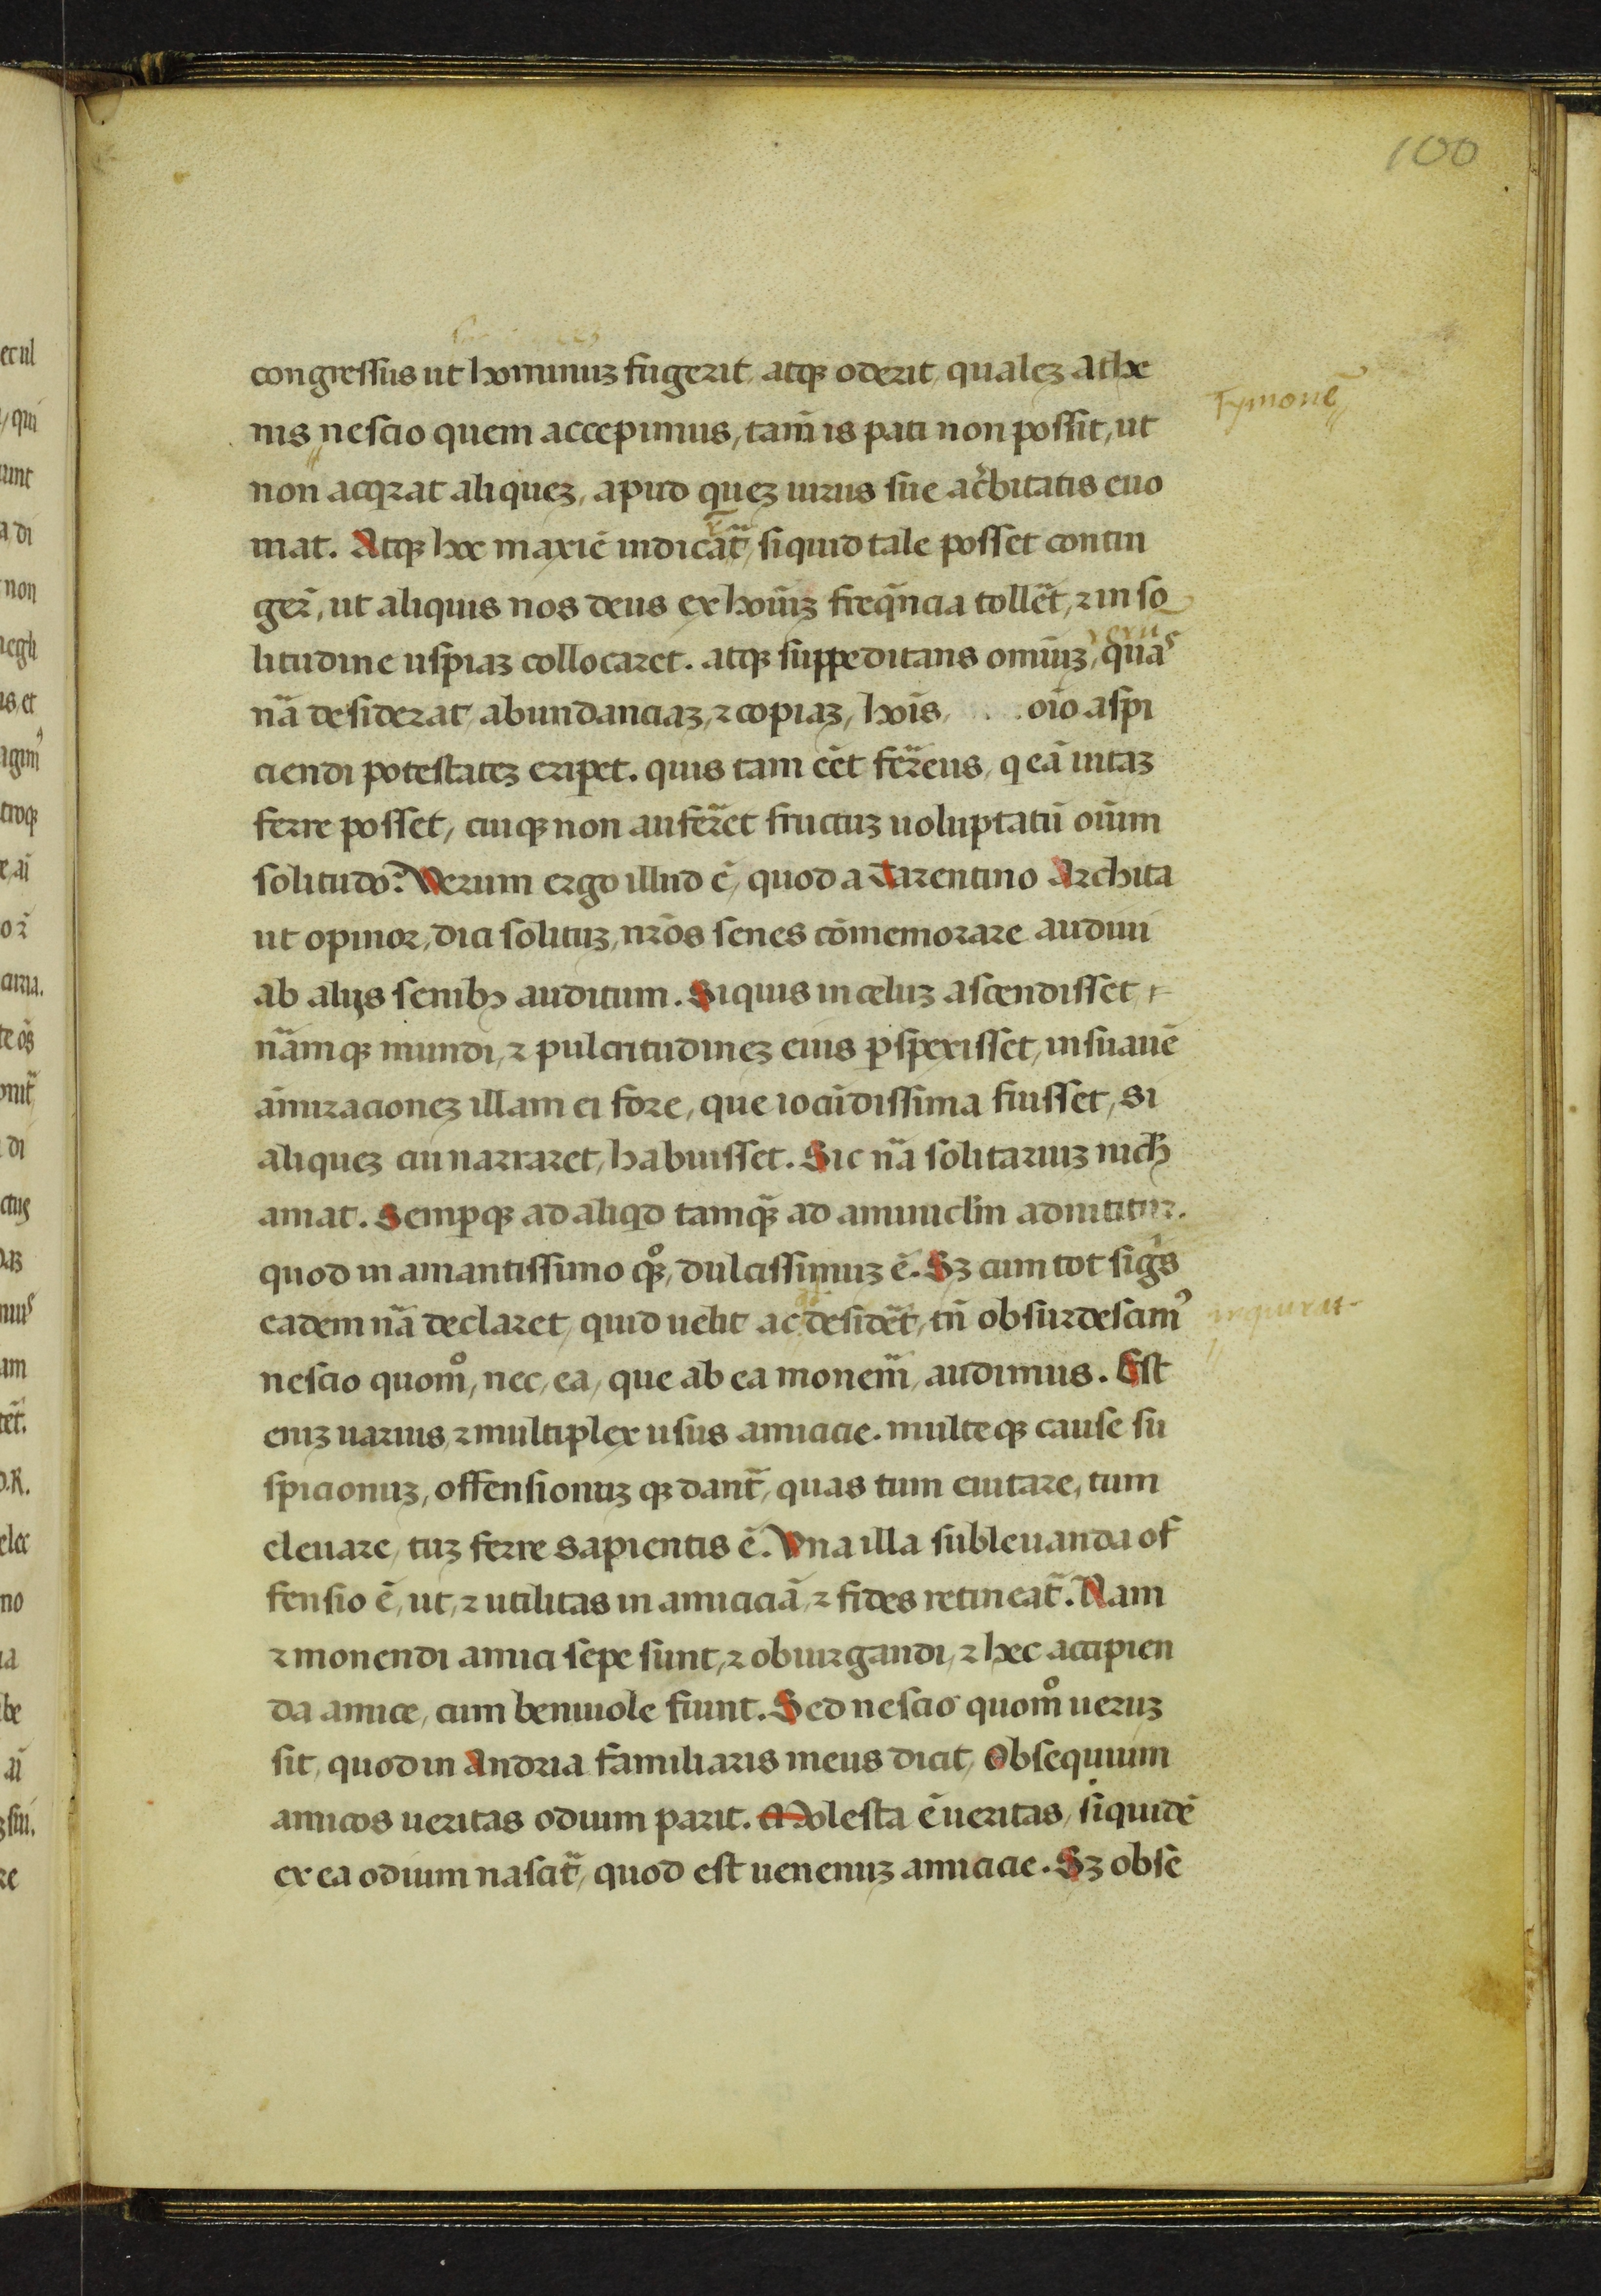 100
congressus ut hominuz fugerit, atqz oderit, qualez athe
nis nescio quem accepimus, tam̄ is pati non possit, ut
Tymonē
non acqrat aliquez, apud quez uirus sue ac̓bitatis euo
mat. Atqz hoc maxiē iudicat̄, siquid tale posset contin
ger̄, ut aliquis nos deus ex hoīuz freq̄ncia tollet̄, ⁊ in so
litudine uspiaz collocaret. atqz suppeditans omniuz, que
nā desiderat, abundanciaz, ⁊ copiaz, hoīs, oīo aspi
ciendi potestatez eripet. quis tam eēt fer̄reus, q eā uitaz
ferre posset, cuiqz non auferret fructuz uoluptatū oīum
solitudo? Verum ergo illud ē, quod a Tarentino Archita
ut opinor, dici solituz, nr̄os senes cōmemorare audiui
ab alijs senibꝫ auditum. Siquis in celuz ascendisset,
nāmqz mundi, ⁊ pulcritudinez eius ꝑspexisset, insuauē
āmiracionez illam ei fore, que iocūdissima fuisset, si
aliquez cui narraret, habuisset. Sic nā solitariuz nich̄
amat. Semꝑqz ad aliqd tamqz̄ ad amuiclm̄ adnititur.
quod in amantissimo qz̊, dulcissimuz ē. Sz cum tot sigs
eadem nā declaret, quid uelit ac desidet̄, tn̄ obsurdescim᾽
nescio quom̊, nec, ea, que ab ea monem̄, audimus. Est
enīz uarius, ⁊ multiplex usus amicicie. multeqz cause su
spicionuz, offensionuz qz dant̄, quas tum euitare, tum
eleuare, tuz ferre sapientis ē. Vna illa subleuanda of
fensio ē, ut, ⁊ utilitas in amiciciā, ⁊ fides retineat̄. Nam
⁊ monendi amici sepe sunt, ⁊ obiurgandi, ⁊ hec accipien
da amice, cum beniuole fiunt. Sed nescio quom̊ ueruz
sit, quod in Andria familiaris meus dicit, Obsequium
amicos ueritas odium parit. Molesta ē ueritas, siquidē
ex ea odium nascit̄, quod est uenenuz amicicie. Sz obse